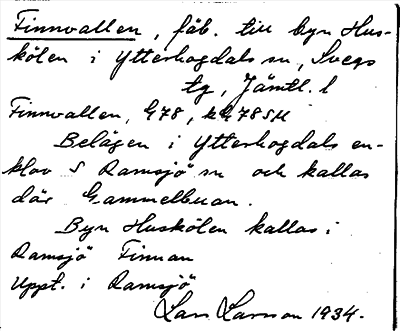 Finnvallen, fäb. till byn Hus-
kölen i Ytterhogdals sn, Svegs
tg, Jämtl. l
Finnvallen, G78, kG78SH
Belägen i Ytterhogdals en-
klav S Ramsjö sn och kallas
där Gammelbuan.
Byn Huskölen kallas i
Ramsjö Finnan
Uppt. i Ramsjö
Lars Larsson 1934.